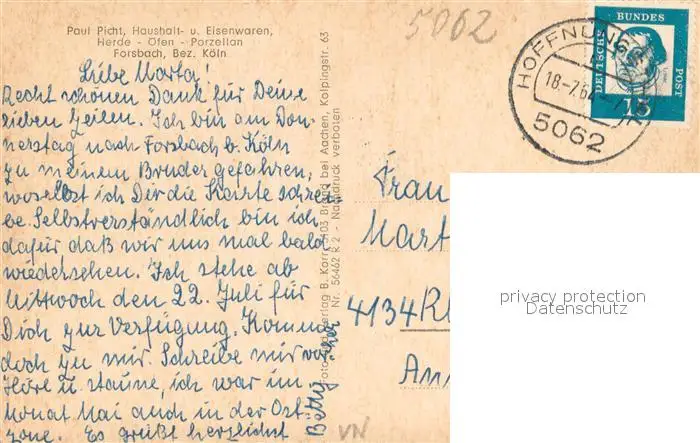 Paul Picht, Haushalt- u. Eisenwaren,
Herde - Öfen - Porzellan
Forsbach, Bez. Köln
5062
Liebe Marta!
Recht schönen Dank für Deine
lieben Zeilen. Ich bin am Don-
nerstag nach Forsbach b. Köln
zu meinem Bruder gefahren,
woselbst ich Dir die Karte schrei-
be. Selbstverständlich bin ich
dafür daß wir uns mal bald
wiedersehen. Ich stehe ab
Mittwoch den 22. Juli für
Dich zur Verfügung. Komme
doch zu mir. Schreibe mir vor-
her
Höre u. staune, ich war im
Monat Mai auch in der Ost-
zone. Es grüßt herzlichst
Betty
Verlag B. Korr, 5103 Brand bei Aachen, Kolpingstr. 63
Nr. 56462 R 2 - Nachdruck verboten
HOFFNUNGSTHAL
18.-7.64
5062
DEUTSCHE
BUNDES
POST
15
Frau
Mart
4134 Rh
An
privacy protection
Datenschutz
VN